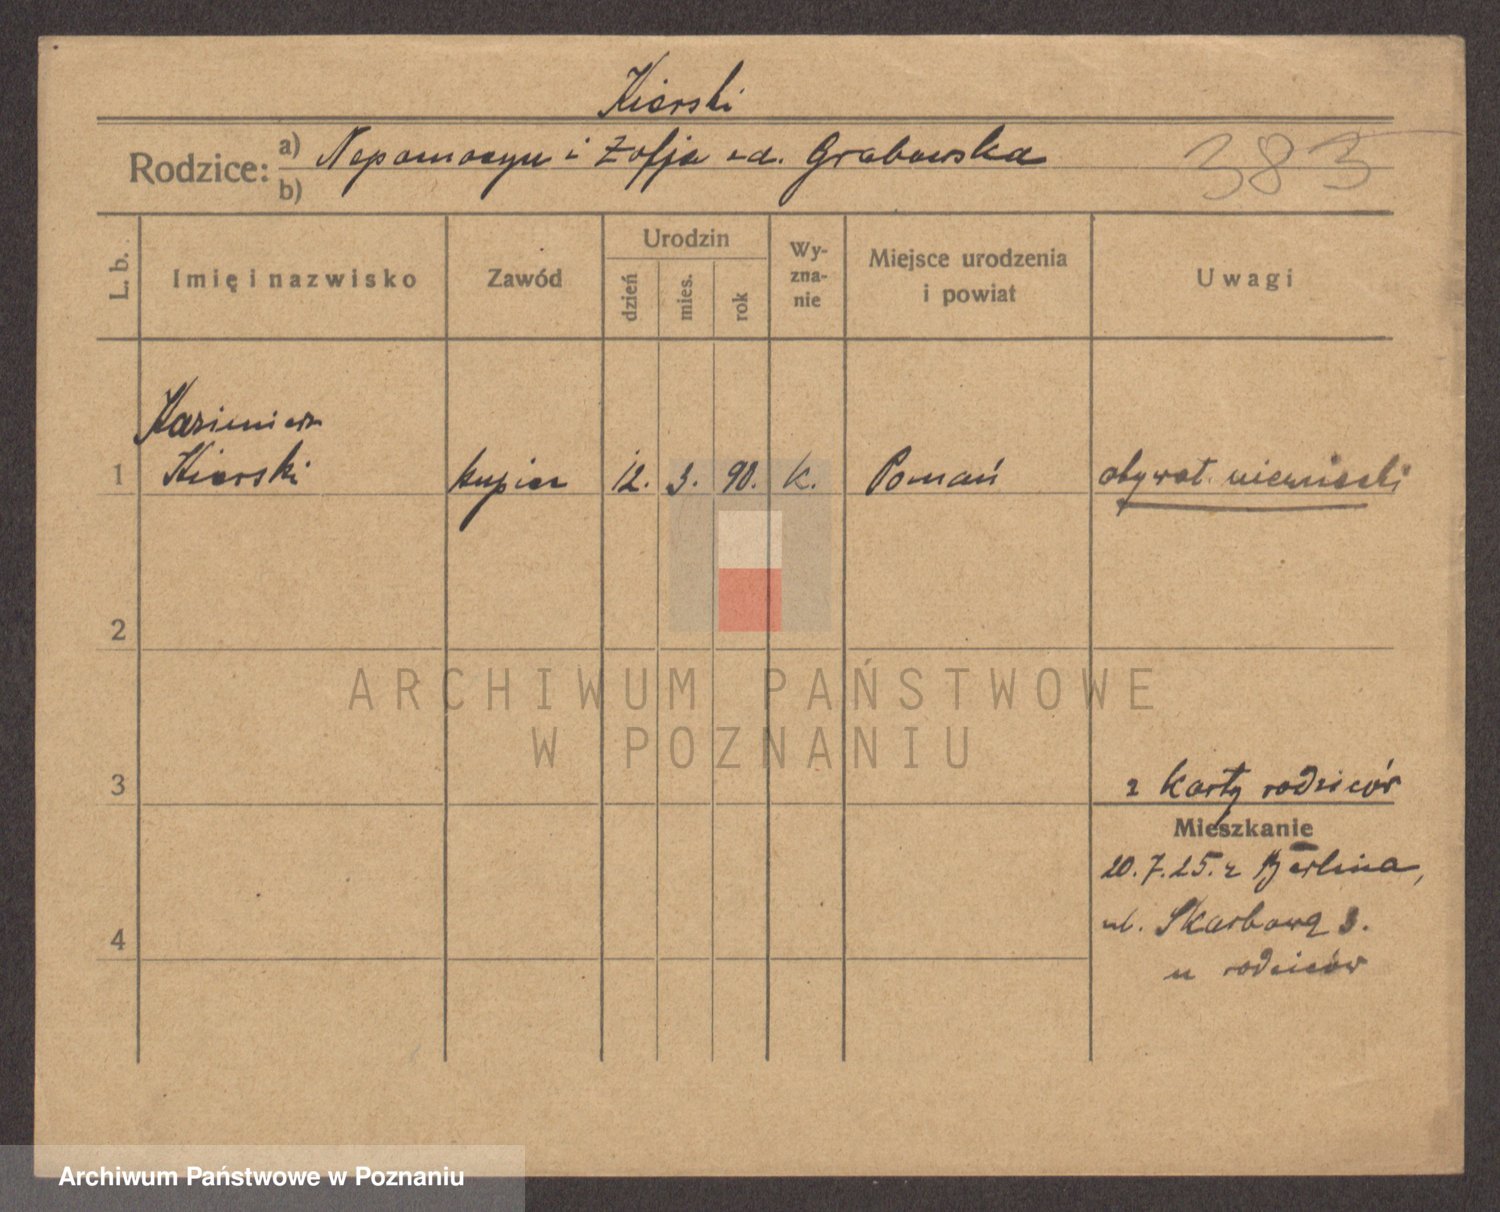 Kierski
Rodzice: a) Nepomocyn i Zofja z d. Grabowska
b)
383
L. b.
Imię i nazwisko
Zawód
Urodzin
dzień
mies.
rok
Wy-
zna-
nie
Miejsce urodzenia
i powiat
Uwagi
Kazimierz
1 Kierski kupiec 12. 3. 90. k. Poznań obywat. niemiecki
2
ARCHIWUM PAŃSTWOWE
W POZNANIU
3
z karty rodziców
Mieszkanie
20.7.25. z Berlina,
ul. Skarbowa 3.
4
u rodziców
Archiwum Państwowe w Poznaniu